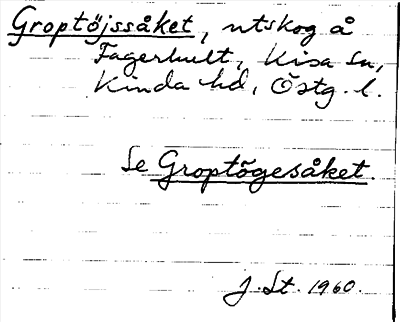 Groptöjssåket, utskog å
Fagerhult, Kisa sn,
Kinda hd, Östg. l.
Se Groptögesåket.
J. St. 1960.